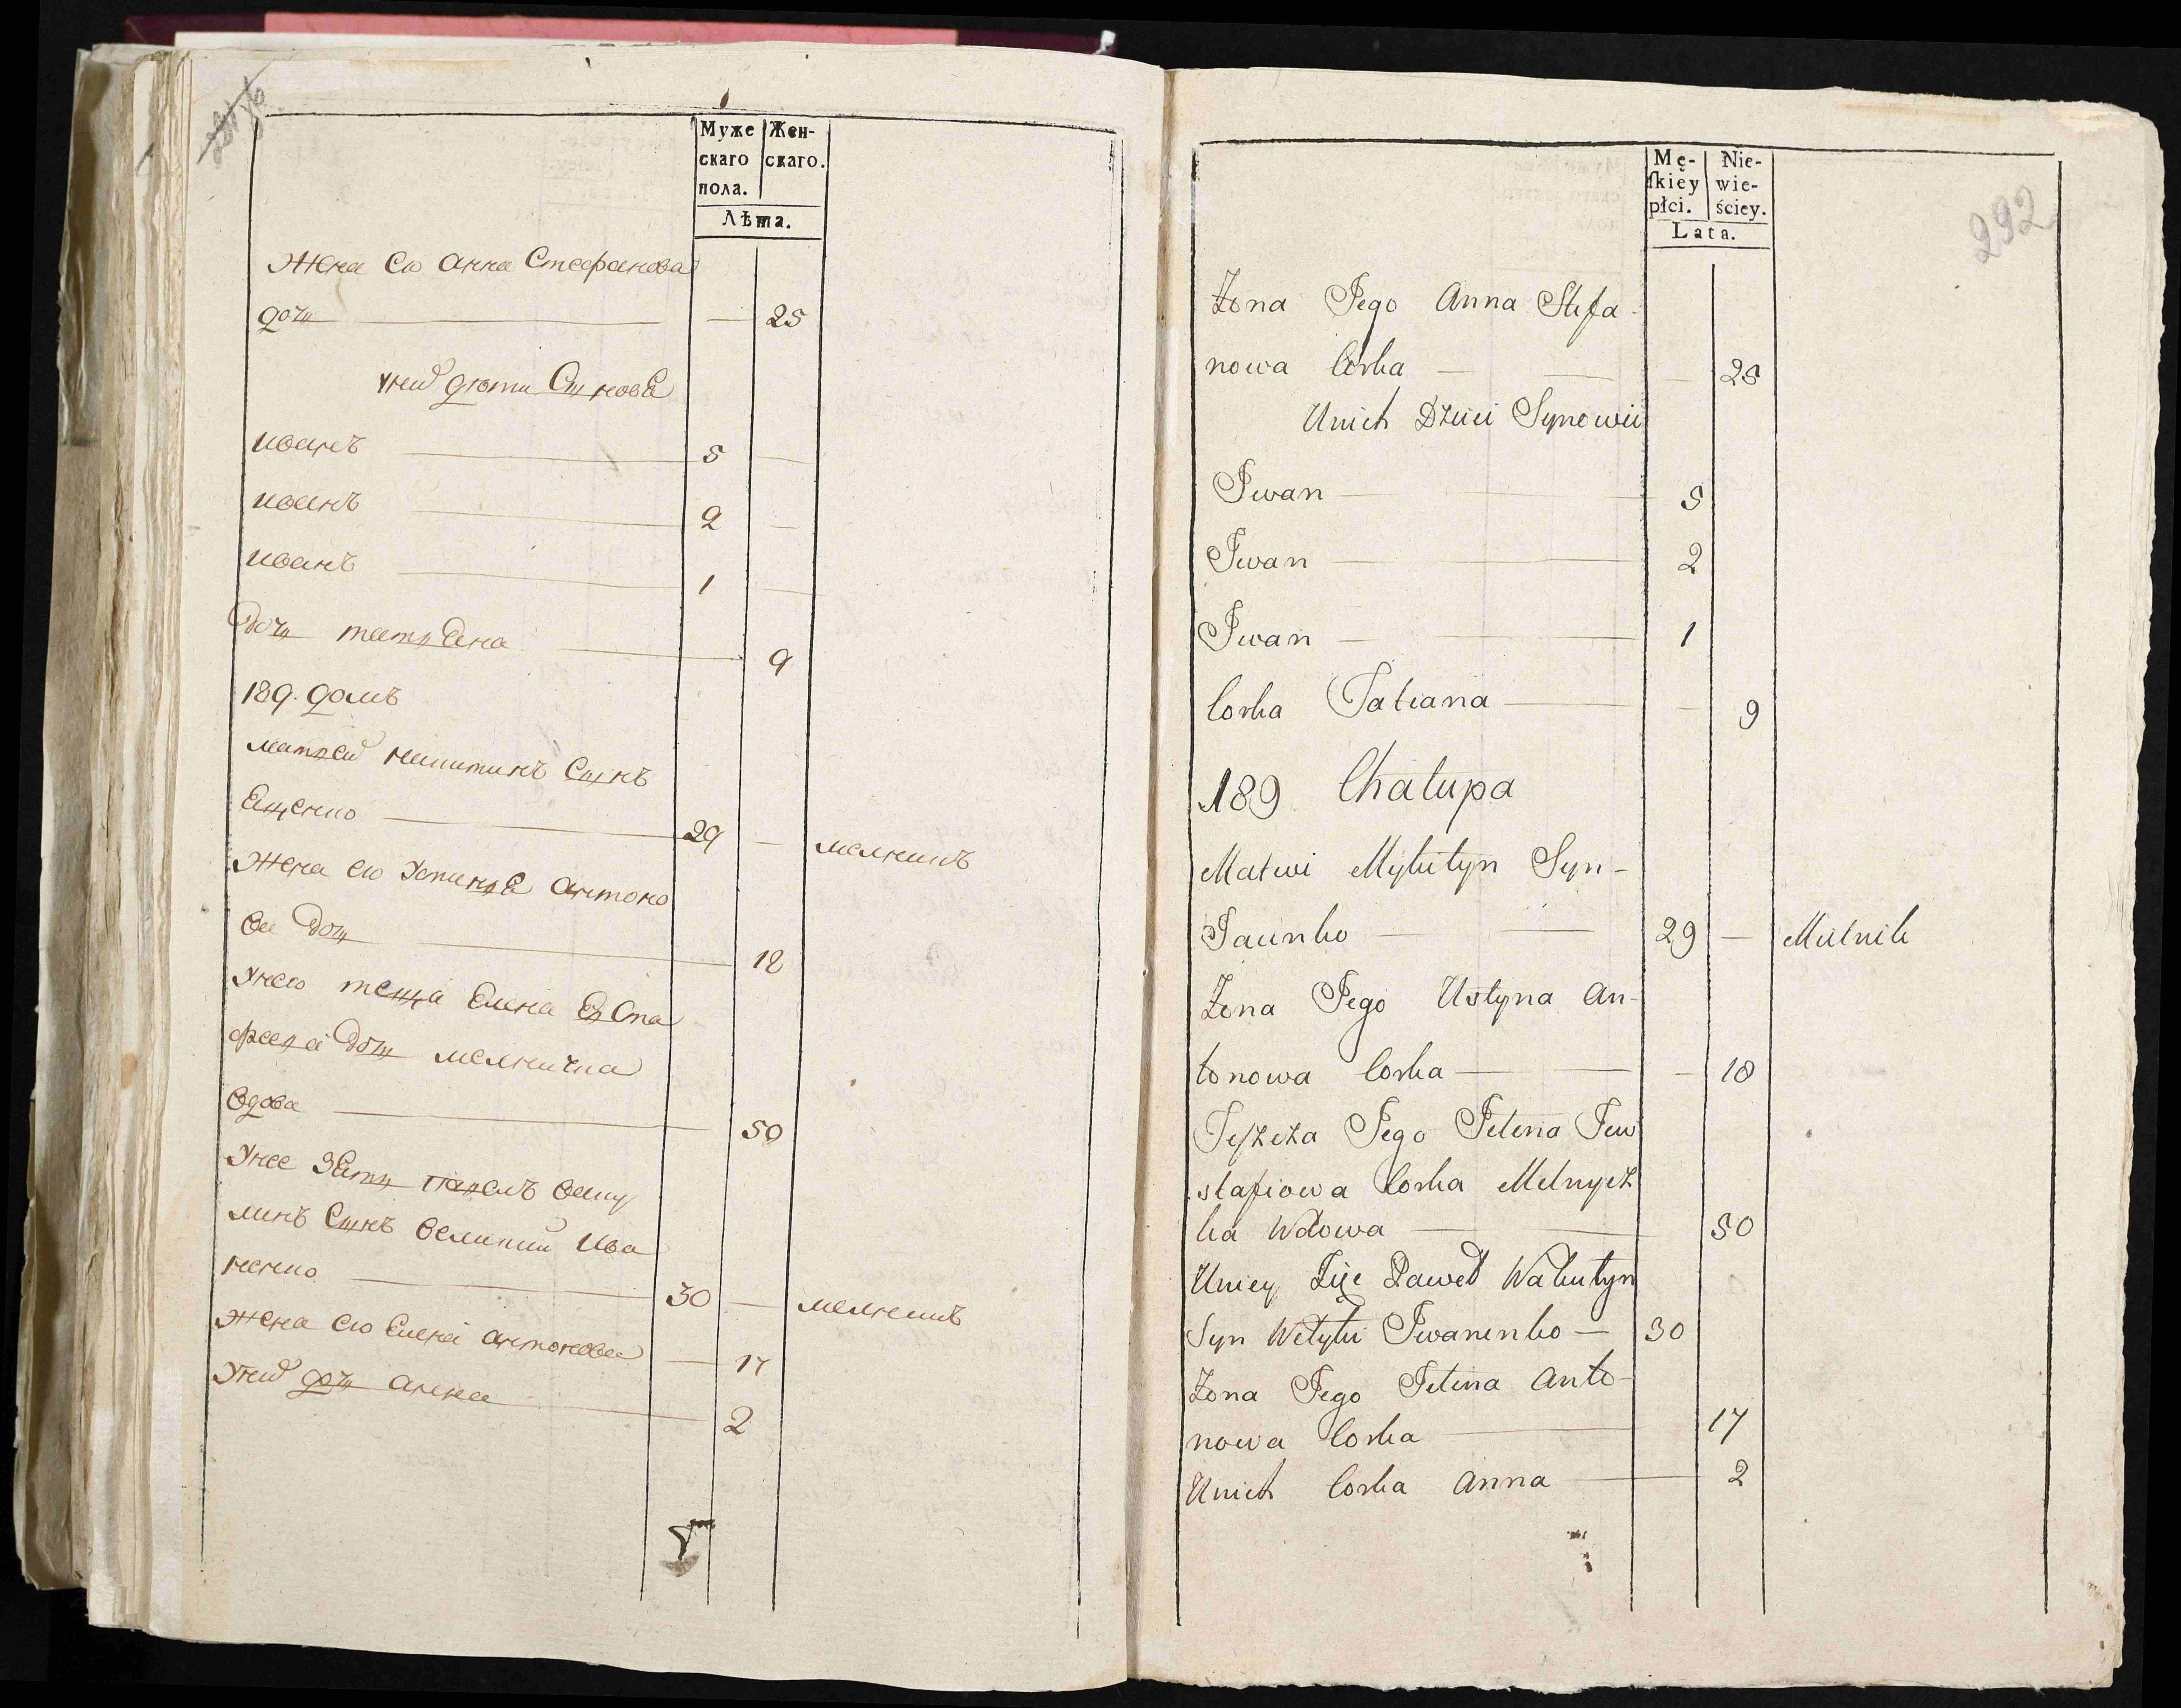 Муже Жен-
скаго скаго.
пола.
Лѣта.
Жена его Анна Стефанова
дочь — — 25
у ней дѣти Сыновѣ
Иванъ — 5 —
Иванъ — 2 —
Иванъ — 1 —
Дочь татьѣна — 9
189. домъ
матвей никитинъ Сынъ
Ященко — 29 — мелникъ
Жена его Устинья Антоно
ва дочь — 18
У него теща Елена Евста
фьева дочь мелничка
вдова — 50
У нее зять павелъ
Сынъ великий Ива
ненко — 30 — мелникъ
Жена его Елена антонова — 17
У ней дочь анна — 2
292
Mę- Nie-
skiéy wie-
płci. ściey.
Lata.
Żona Jego Anna Stefa-
nowa Corka — — — 25
Unich Dzieci Synowie
Iwan — 5
Iwan — 2
Iwan — 1
Corka Tatiana — — 9
189 Chalupa
Matwi Mykityn Syn-
Jacenko — — 29 — Mielnik
Żona Jego Ustyna An-
tonowa Corka — — — 18
Teszcza Jego Jelena Jew
stafiowa Corka Melnycz
ka Wdowa — — 50
Uniey Zięć Paweł Wakulyn
Syn Wetyki Iwanenko — 30
Żona Jego Jelena Anto-
nowa Corka — 17
Unich Corka Anna — 2